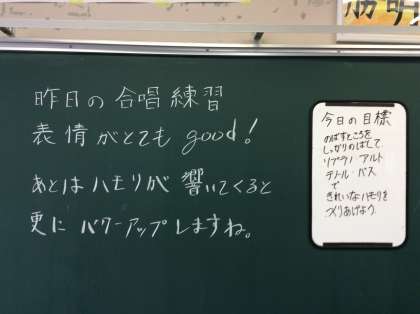 昨日の合唱練習
表情がとても good!
あとはハモリが響いてくると
更にパワーアップしますね。
今日の目標
のばすところを
しっかりのばして
ソプラノ アルト
テノール・バス
で
きれいなハモリを
つくりあげよう